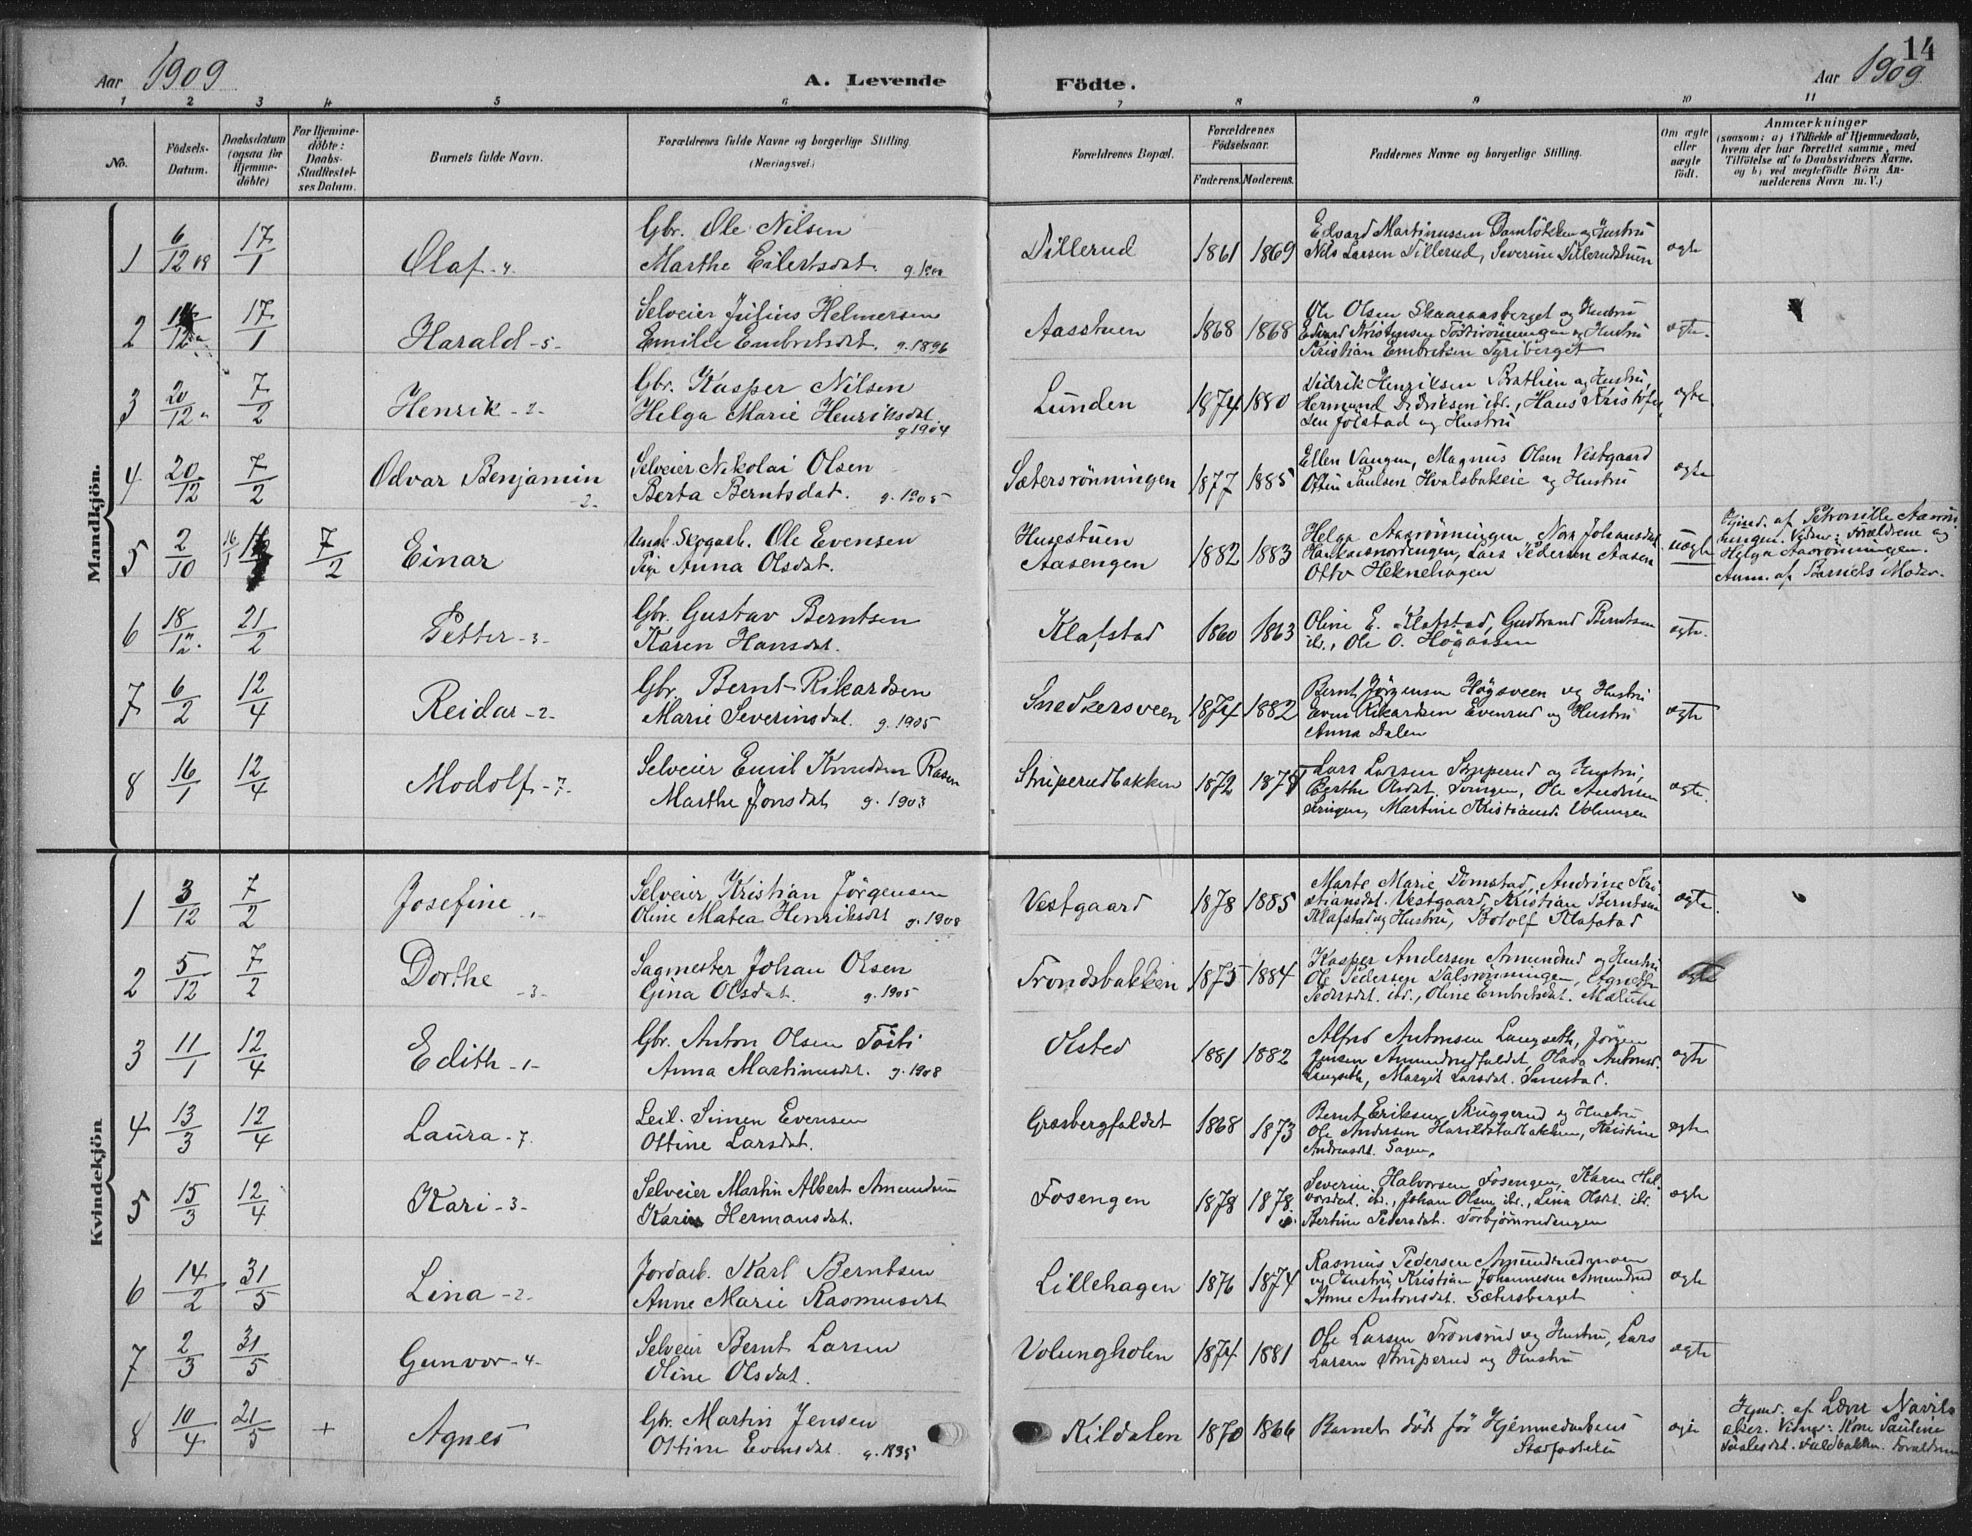 Aar 1909
A. Levende
Fødte.
Aar 1909
14
1 2 3 4 5 6 7 8 9 10 11
No.
Fødsels-
Datum.
Daabsdatum
(ogsaa for
Hjemme-
døbte)
For Hjemme-
døbte:
Daabs-
Stadfæstel-
ses Datum.
Barnets fulde Navn.
Forældrenes fulde Navne og borgerlige Stilling
(Næringsvei.)
Forældrenes Bopæl.
Forældrenes
Fødselsaar.
Faderens. Moderens.
Faddernes Navne og borgerlige Stilling.
Om ægte
eller
uægte
født.
Anmærkninger
(saasom: a) i Tilfælde af Hjemmedaab,
hvem der har forrettet samme, med
Tilføielse af to Daabsvidners Navne.
og b) ved uegtefødte Börn An-
melderens Navn m. V.)
Mandkjön.
1 6/12 08 17/1 Olaf -4-
Gbr. Ole Nilsen
Marthe Eilertsdat.
Dillerud 1861 1869
Edvard Martinussen og Hustru
Nils Larsen Dillerud, Severine Dillerudstuen
ægte
2 17/1 Harald -5-
Selveier Julius Helmersen
Emilie Embretsdat. g. 1896
Aasstuen 1868 1868
Ole Olsen Skaaraasberget og Hustru
Edvard Kristensen og Hustru
Kristian Embretsen Tyriberget
ægte.
3 20/12 " 7/2 Henrik -2-
Gbr. Kasper Nilsen
Helga Marie Henriksdat.
g 1904
Lunden 1874 1880
Didrik Henriksen Brathien og Hustru,
Hermund Didriksen ibd., Hans Kristofer-
sen Jølstad og Hustru
ægte.
4 20/12 7/2 Odvar Benjamin
-2-
Selveier Nikolai Olsen
Berta Berntsdat. g. 1905
Sætersrönningen 1877 1885
Ellen Vangen, Magnus Olsen Vestgaard
Otten Paulsen Hvalsbakeie og Hustru
ægte
5 2/10 16/1 7/2 Einar
Ungk. Skogarb. Ole Evensen
Pige Anna Olsdat.
Husestuen
Aasengen 1882 1883
Helga Aarönningen, Nora Johansdat.
Lars Pedersen Aasen
Otto Heknehagen
uægte
Hjmd. af Petronille Aarön-
ningen. Vidner: Forældrene og
Helga Aarönningen.
Anm. af Barnets Moder.
6 18/12. 21/2 Petter -3-
Gbr. Gustav Berntsen
Karen Hansdat.
Klafstad 1860 1863
Oline E. Klafstad, Gudbrand Berntsen
ibd., Ole O. Högaasen
ægte.
7 6/2 12/4 Reidar -2-
Gbr. Bernt Rikardsen
Marie Severinsdat. g. 1905
Snedkersveen 1874 1882
Bernt Jörgensen Högsveen og Hustru
Even Rikardsen Evenrud og Hustru
Anna Dalen
ægte
8 16/1 12/4 Modolf -7-
Selveier Emil Knudsen Rasen
Marthe Jonsdat g. 1903
Struperudbakken 1872 1878
Lars Larsen Struperud og Hustru,
Berthe Olsdat. Svingen, Ole Andersen
Svingen, Martine Kristiansd. Volungen
ægte.
Kvindekjön
1 3/12 7/2 Josefine -1-
Selveier Kristian Jörgensen
Oline Matea Henriksdat g. 1908
Vestgaard 1878 1885
Marte Marie Domstad, Andrine Kri-
stiansdat. Vestgaard, Kristian Berntsen
Klafstad og Hustru, Botolf Klafstad
ægte.
2 5/12 7/2 Dorthe -3-
Sagmester Johan Olsen
Gina Olsdat. g. 1905
Trondsbakken 1875 1884
Kasper Andersen Amundrud og Hustru
Ole Pedersen Dalsrönningen, Agnethe
Pedersdat. ibd., Oline Embretsdat.
ægte
3 11/1 12/4 Edith -1-
Gbr. Anton Olsen Tösti
Anna Martinusdat. g. 1908
Olsted 1881 1882
Alfred Antonsen Langseth, Jörgen
Jensen Amundrudfaldet, Olava Antonsd.
Langseth, Margit Larsdat.
ægte
4 13/3 12/4 Laura -7.
Leil. Simen Evensen
Ottine Larsdat.
Græsbergfaldet 1868 1873
Bernt Eriksen Skuggerud og Hustru
Ole Andersen Harildstadbakken, Kristine
Andreasdat. Sagen.
ægte
5 15/3 12/4 Kari -3-
Selveier Martin Albert Amundsen
Karen Hermansdat.
Fosengen 1878 1878
Severin Halvorsen Fosengen, Karen Hal-
vorsdat. ibd., Johan Olsen ibd., Lina Olsdt. ibd.
Bertine Pedersdat. Torbjörnrudengen
ægte
6 14/2 31/5 Lina -2-
Jordarb. Karl Berntsen
Anne Marie Rasmusdat
Lillehagen 1876 1874
Rasmus Pedersen Amundrudmoen
og Hustru, Kristian Johannesen Amundrud
Anne Antonsdat. Sætersberget
ægte
7 2/3 31/5 Gunvor -4-
Selveier Bernt Larsen
Oline Olsdat.
Volungholen 1874 1881
Ole Larsen Tronsrud og Hustru, Lars
Larsen Struperud og Hustru
ægte
8 10/4 21/5 + Agnes
Gbr. Martin Jensen
Ottine Evensdat. g. 1895
Kildalen 1870 1866
Barnet döde för Hjemmedaabens
Stadfæstelse
ægte
Hjmd. af Lærer
Vidner: Kone Pauline
Faldbakken. Forældrene